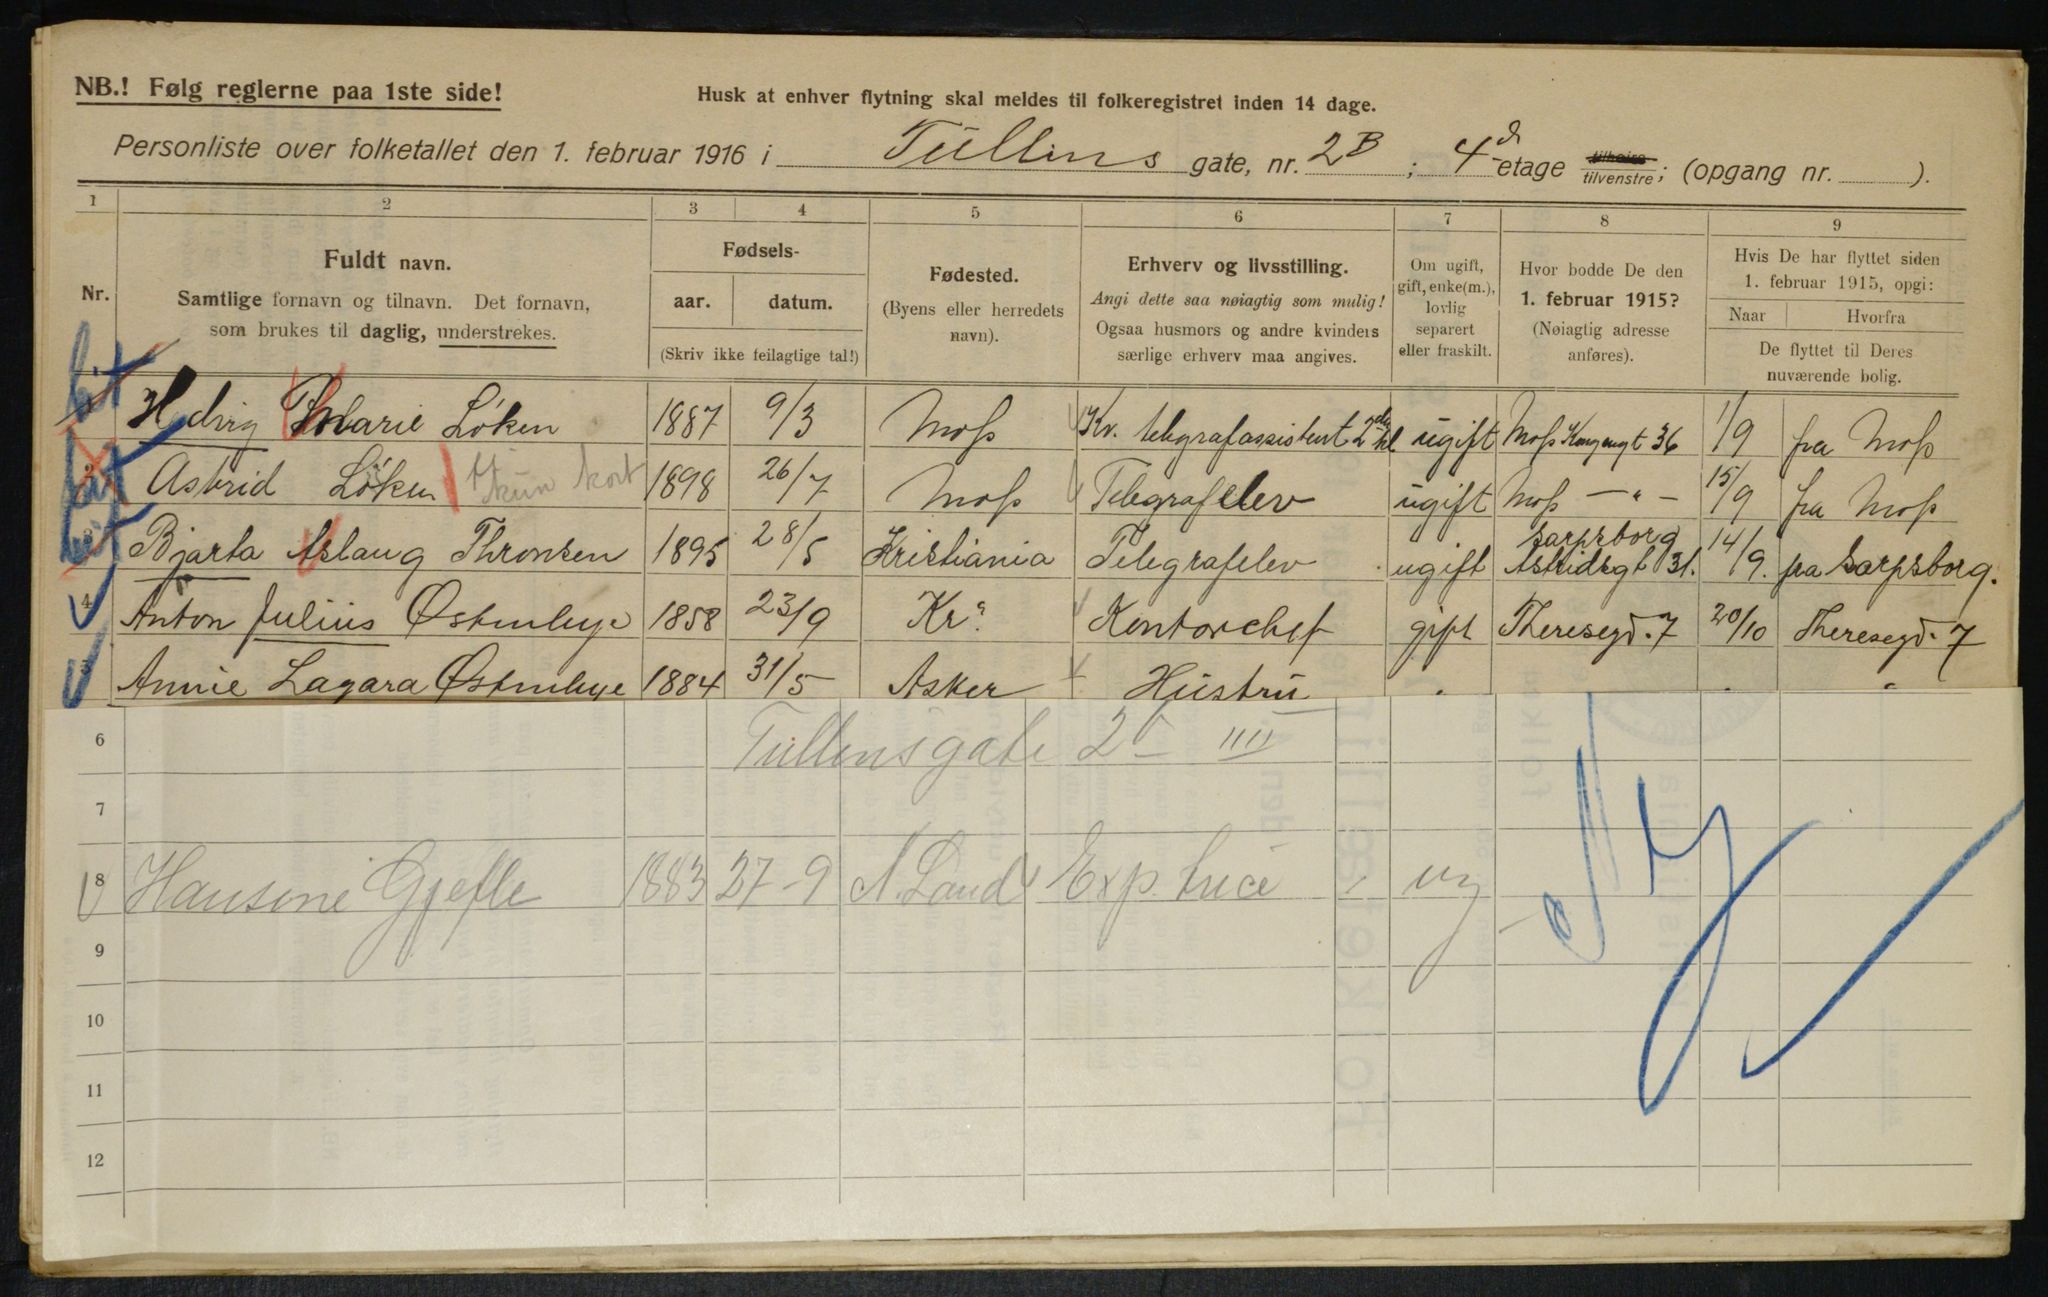 NB.! Følg reglerne paa 1ste side!
Husk at enhver flytning skal meldes til folkeregistret inden 14 dage.
Personliste over folketallet den 1. februar 1916 i Tullins gate, nr. 2B ; 4 etage tilhøire tilvenstre; (opgang nr. ).
1 2 3 4 5 6 7 8 9
Nr.
Fuldt navn.
Samtlige fornavn og tilnavn. Det fornavn,
som brukes til daglig, understrekes.
Fødsels-
aar. datum.
(Skriv ikke feilagtige tal!)
Fødested.
(Byens eller herredets
navn).
Erhverv og livsstilling.
Angi dette saa nøiagtig som mulig!
Ogsaa husmors og andre kvinders
særlige erhverv maa angives.
Om ugift,
gift, enke(m.),
lovlig
separert
eller fraskilt.
Hvor bodde De den
1. februar 1915?
(Nøiagtig adresse
anføres).
Hvis De har flyttet siden
1. februar 1915, opgi:
Naar Hvorfra
De flyttet til Deres
nuværende bolig.
Hedvig Marie Löken 1887 9/3 Moss Kv. telegrafassistent 2 kl ugift Moss Kongensgt 36 1/9 fra Moss
Astrid Löken kun kort 1898 26/7 Moss Telegrafelev ugift Moss — " — 15/9 fra Moss
3 Bjarta Aslaug Thronsen 1895 28/5 Kristiania Telegrafelev ugift Sarpsborg Astridsgt 31. 14/9. fra Sarpsborg.
4 Anton Julius Østenbye 1858 23/9 Kr.a Kontorchef gift Theresegd. 7 20/10 Theresegd. 7
5 Annie Lagara Østenbye 1884 31/5 Asker Hustru " " "
6 Tullinsgate 2b IIII
7
8 Hansine Gjefle 1883 27-9 N. Land Exp. trice ug
9
10
11
12
Ny